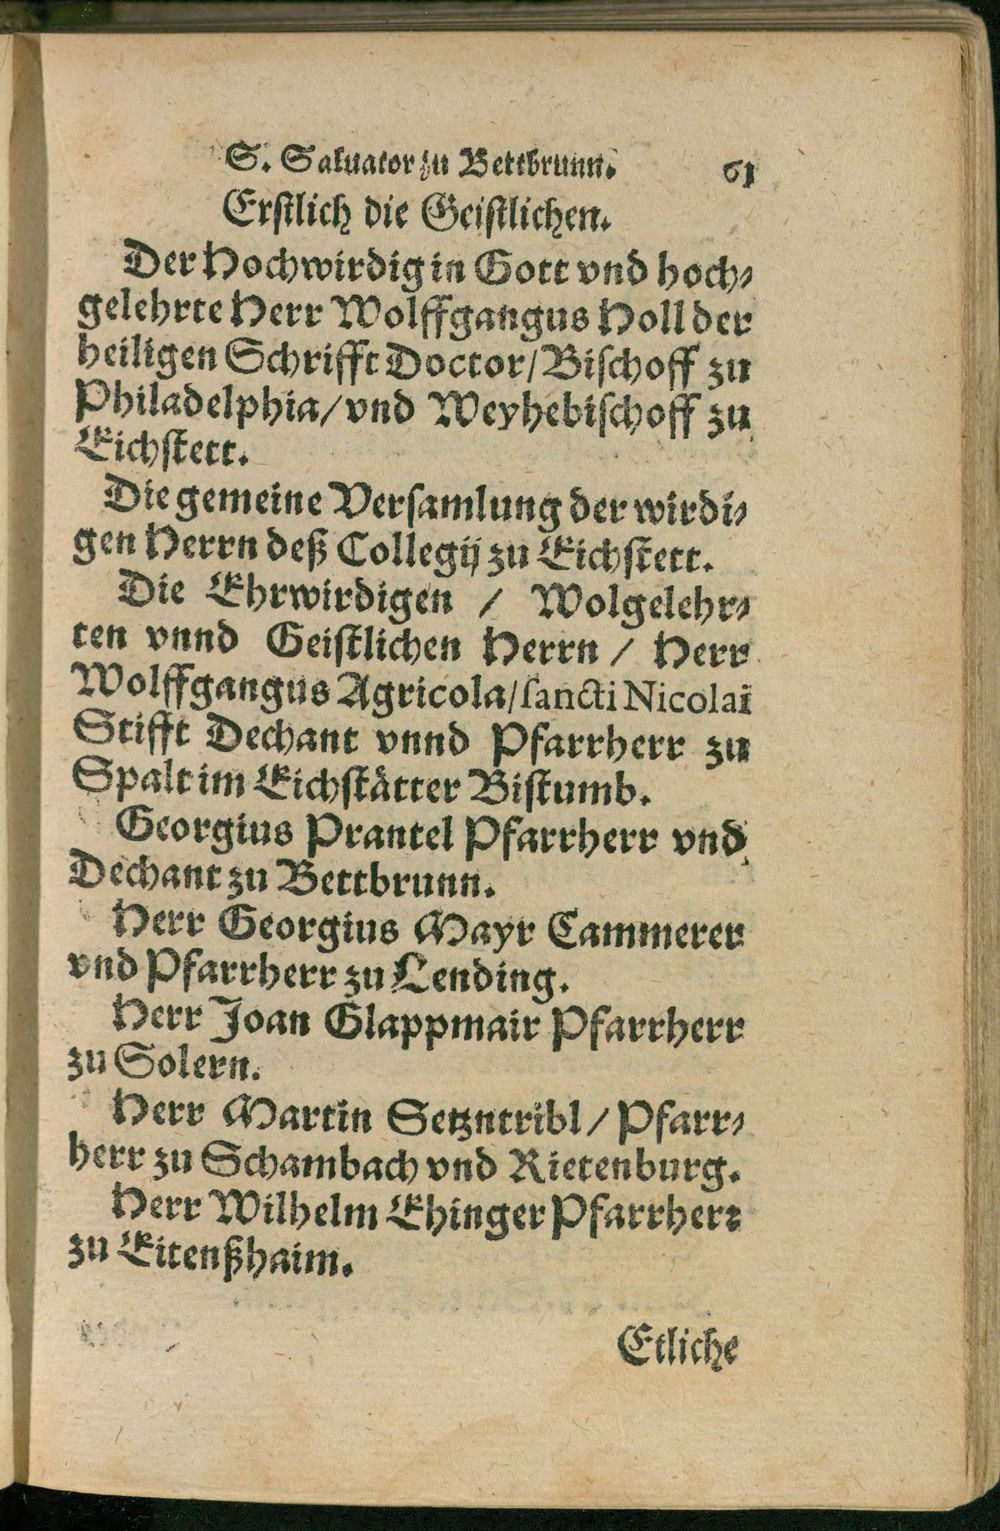 S. Saluator zu Bettbrunn. 61
Erstlich die Geistlichen.
Der Hochwirdig in Gott vnd hoch⸗
gelehrte Herr Wolffgangus Holl der
heiligen Schrifft Doctor/ Bischoff zu
Philadelphia/ vnd Weyhebischoff zu
Eichstett.
Die gemeine Versamlung der wirdi⸗
gen Herrn deß Collegij zu Eichstett.
Die Ehrwirdigen / Wolgelehr⸗
ten vnnd Geistlichen Herrn / Herr
Wolffgangus Agricola/ sancti Nicolai
Stifft Dechant vnnd Pfarrherr zu
Spalt im Eichståtter Bistumb.
Georgius Prantel Pfarrherr vnd
Dechant zu Bettbrunn.
Herr Georgius Mayr Cammerer
vnd Pfarrherr zu Lending.
Herr Joan Glappmair Pfarrherr
zu Solern.
Herr Martin Setzntribl / Pfarr⸗
herr zu Schambach vnd Rietenburg.
Herr Wilhelm Ehinger Pfarrherr
zu Eitenßhaim.
Etliche